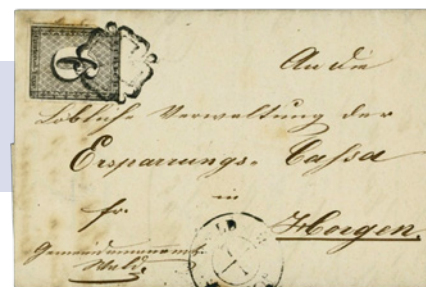 6
An die
Löbliche Verwaltung der
Ersparrungs-Cassa
in
fr.
Horgen.
Gemeindammann
Wald.
WALD